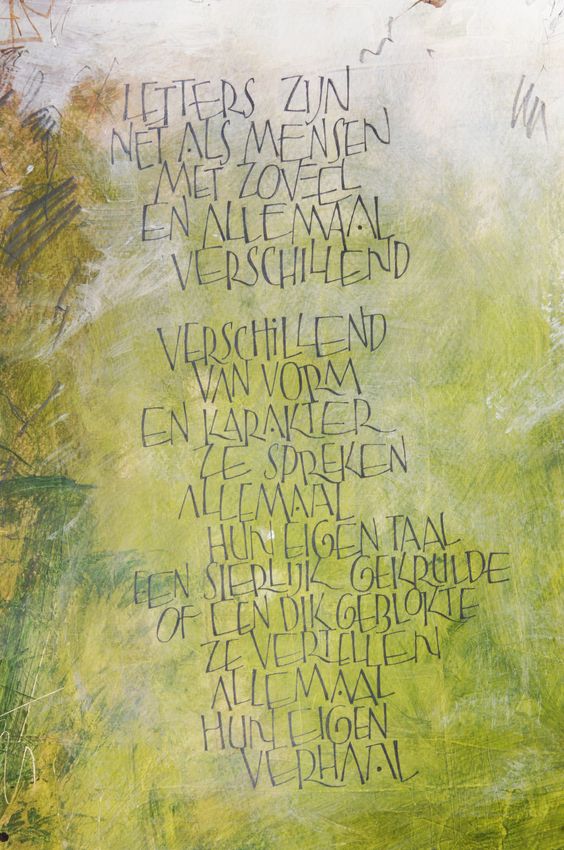 LETTERS ZIJN
NET ALS MENSEN
MET ZOVEEL
EN ALLEMAAL
VERSCHILLEND
VERSCHILLEND
VAN VORM
EN KARAKTER
ZE SPREKEN
ALLEMAAL
HUN EIGEN TAAL
EEN SIERLIJK GEKRULDE
OF EEN DIK GEBLOKTE
ZE VERTELLEN
ALLEMAAL
HUN EIGEN
VERHAAL